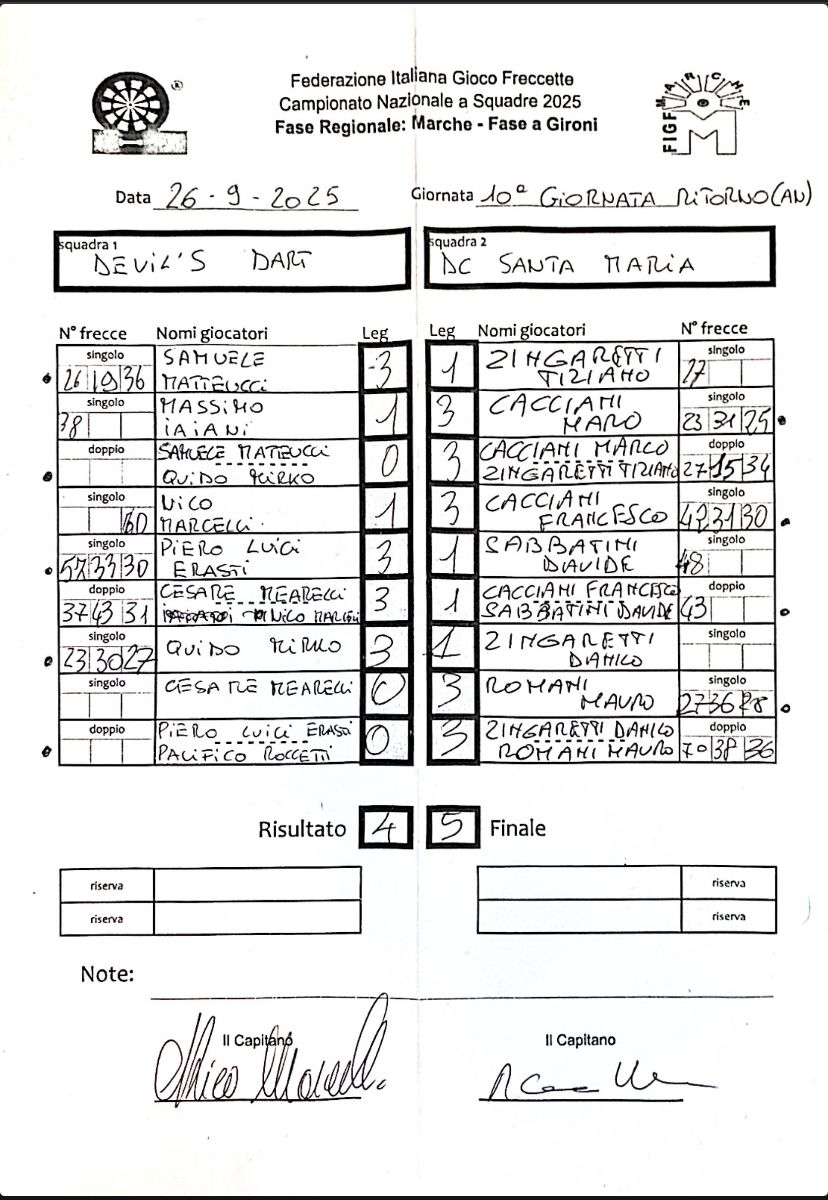 Federazione Italiana Gioco Freccette
Campionato Nazionale a Squadre 2025
Fase Regionale: Marche - Fase a Gironi
®
MARCHE
FIGF
M
Data 26-9-2025 Giornata 10ª GIORNATA RITORNO (AN)
squadra 1
DEVIL'S DART
squadra 2
DC SANTA MARIA
N° frecce Nomi giocatori Leg Leg Nomi giocatori N° frecce
singolo SAMUELE 3 1 ZINGARETTI singolo
26 19 36 MATTEUCCI TIZIANO 27
singolo MASSIMO 1 3 CACCIANI singolo
38 IAIANI MARO 23 31 25
doppio SAMUELE MATTEUCCI 0 3 CACCIANI MARCO doppio
QUIDO MIRKO ZINGARETTI TIZIANO 27 15 34
singolo NICO 1 3 CACCIANI singolo
60 MARCELLI FRANCESCO 42 31 30
singolo PIERO LUIGI 3 1 SABBATINI singolo
57 33 30 ERASTI DAVIDE 48
doppio CESARE MEARELLI 3 1 CACCIANI FRANCESCO doppio
37 43 31 NICO MARCELLI SABBATINI DAVIDE 43
singolo QUIDO MIRKO 3 1 ZINGARETTI singolo
23 30 27 DANILO
singolo CESARE MEARELLI 0 3 ROMANI singolo
MAURO 27 36 28
doppio PIERO LUIGI ERASTI 0 3 ZINGARETTI DANILO doppio
PACIFICO ROCCETTI ROMANI MAURO 70 38 36
Risultato 4 5 Finale
riserva riserva
riserva riserva
Note:
Il Capitano Il Capitano
Nico Marcelli